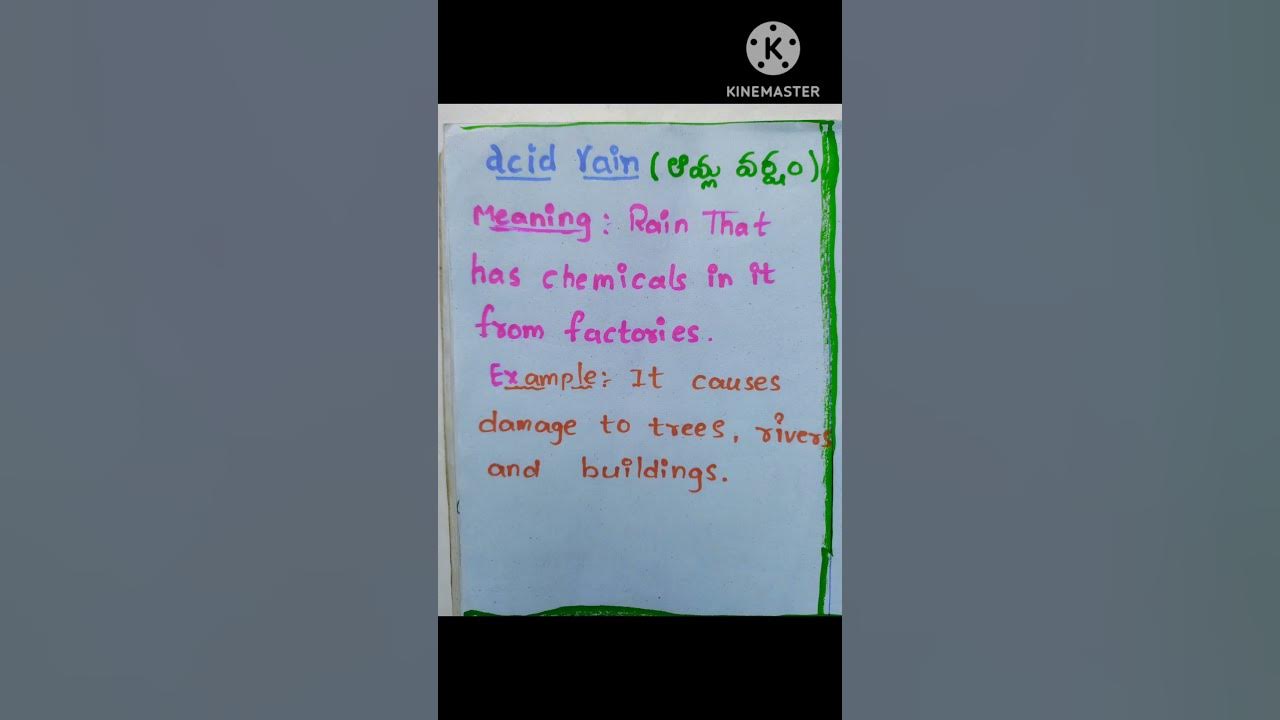 KINEMASTER
acid rain (ఆమ్ల వర్షం)
Meaning: Rain That
has chemicals in it
from factories.
Example:- It causes
damage to trees, rivers
and buildings.